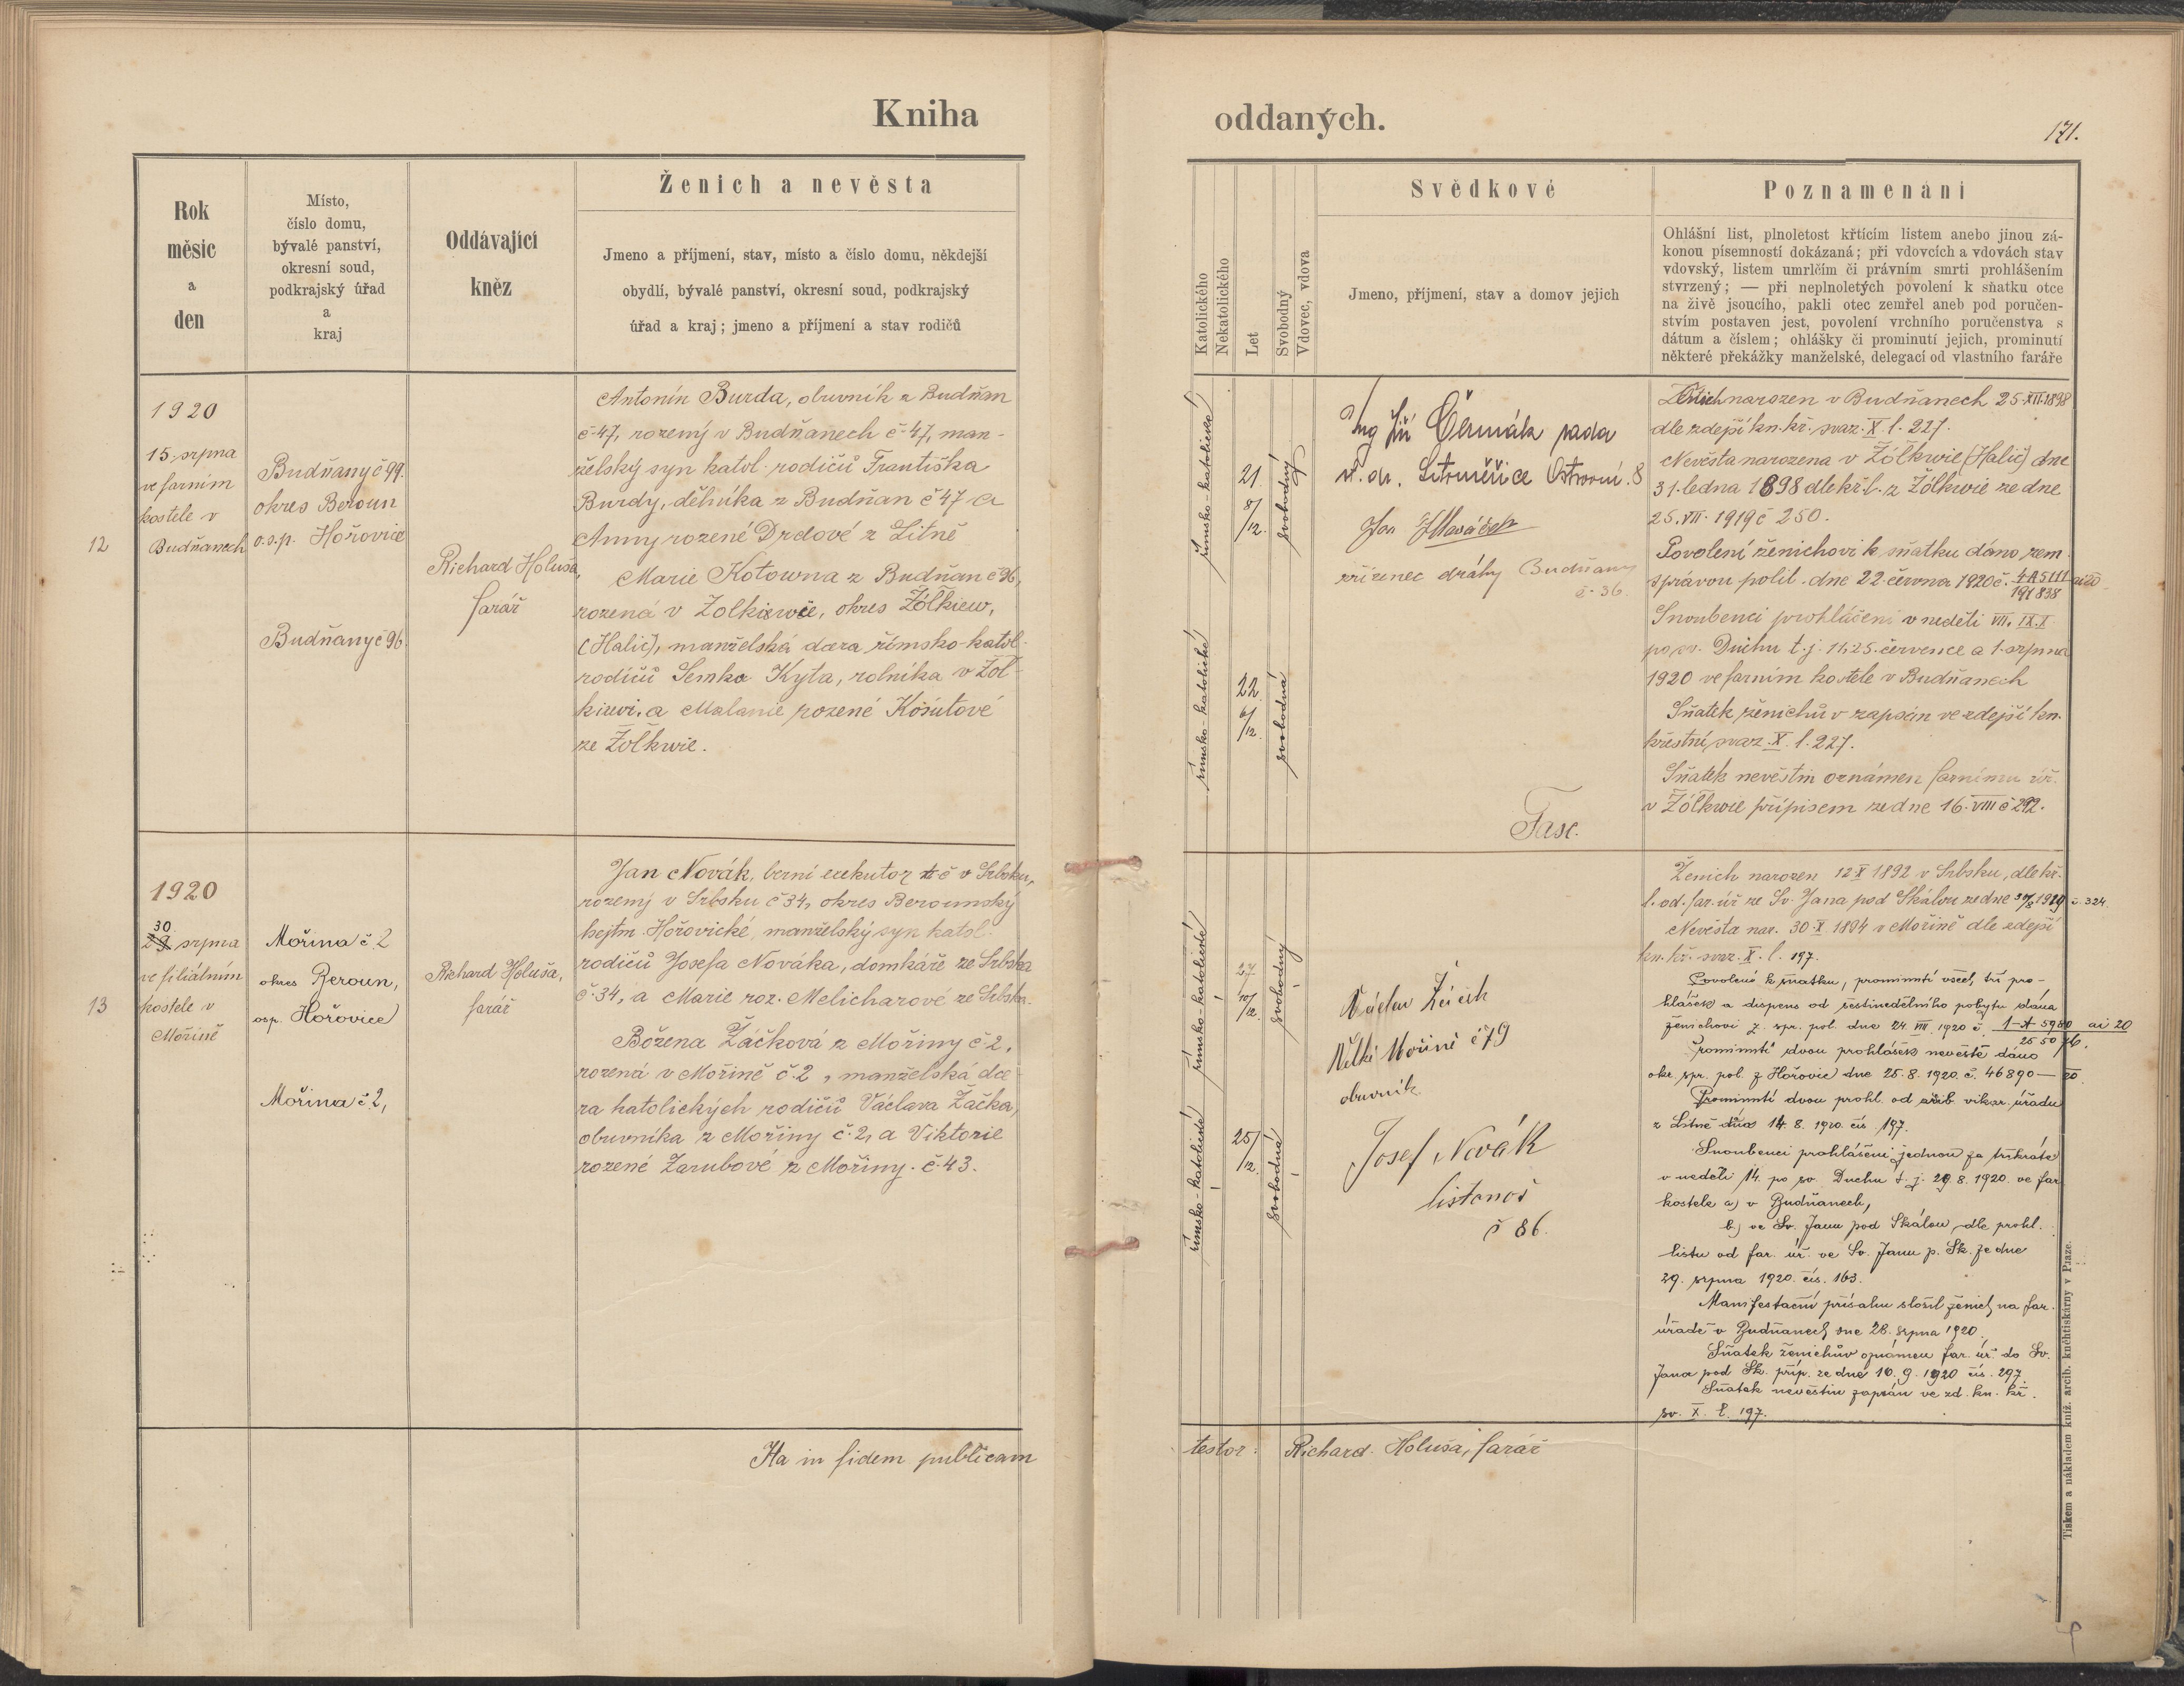 Kniha
Rok
měsíc
a
den
Místo,
číslo domu,
bývalé panství,
okresní soud,
podkrajský úřad
a
kraj
Oddávající
kněz
Ženich a nevěsta
Jmeno a příjmení, stav, místo a číslo domu, někdejší
obydlí, bývalé panství, okresní soud, podkrajský
úřad a kraj; jmeno a příjmení a stav rodičů
12
1920
15. srpna
ve farním
kostele v
Budňanech
Budňany č 99.
okres Beroun
o.s.p. Hořovice
Budňany č 96.
Richard Holuša,
farář
Antonín Burda, obuvník z Budňan
č-47, rozený v Budňanech č-47, man-
želský syn katol. rodičů Františka
Burdy, dělníka z Budňan č 47 a
Anny rozené Drdové z Litně
Marie Kotowna z Budňan č 96,
rozená v Zolkiewie, okres Żółkiew,
(Halič), manželská dcera římsko-katol.
rodičů Semka Kyta, rolníka v Żół-
kiewi, a Malanie rozené Košutové
ze Żółkwie.
13
1920
30.
29 srpna
ve filiálním
kostele v
Mořině
Mořina č. 2
okres Beroun,
osp. Hořovice
Mořina č. 2,
Richard Holuša,
farář
Jan Novák, berní exekutor t č v Srbsku,
rozený v Srbsku č 34, okres Berounský
hejtm. Hořovické, manželský syn katol.
rodičů Josefa Nováka, domkáře ze Srbska
č. 34, a Marie roz. Melicharové ze Srbska.
Božena Žáčková z Mořiny č. 2,
rozená v Mořině č. 2, manželská dce-
ra katolických rodičů Václava Žáčka,
obuvníka z Mořiny č. 2, a Viktorie
rozené Zarubové z Mořiny. č. 43.
Ita in fidem publicam
oddaných.
171.
Katolického
Nekatolického
Let
Svobodný
Vdovec, vdova
Svědkové
Jmeno, příjmení, stav a domov jejich
Poznamenání
Ohlášní list, plnoletost křtícím listem anebo jinou zá-
konou písemností dokázaná; při vdovcích a vdovách stav
vdovský, listem umrlčím či právním smrti prohlášením
stvrzený; — při neplnoletých povolení k sňatku otce
na živě jsoucího, pakli otec zemřel aneb pod poručen-
stvím postaven jest, povolení vrchního poručenstva s
dátum a číslem; ohlášky či prominutí jejich, prominutí
některé překážky manželské, delegací od vlastního faráře
římsko-katolické
21.
8/12.
svobodný
římsko-katolické
22
6/12.
svobodná
Ing Jiří Čermák rada
st. dr. Litoměřice Ostrovní. 8
Jan
zřízenec dráhy Budňany
č-36.
Fasc.
Ženich narozen v Budňanech 25.XII.1898
dle zdejší kn. kř. svaz. X. l. 227.
Nevěsta narozena v Żółkwie (Halič) dne
31. ledna 1898 dle kř. l. z Żółkwie ze dne
25. VII. 1919 č 250.
Povolení ženichovi k sňatku dáno zem.
správou polit. dne 22. června 1920 č. 4 A 5111 ai 20
191838
Snoubenci prohlášeni v neděli VII. IX. X
po sv. Duchu t. j. 11, 25. července a 1. srpna
1920 ve farním kostele v Budňanech
Sňatek ženichův zapsán ve zdejší kn.
křestní svaz. X. l. 227.
Sňatek nevěstin oznámen farnímu úř.
v Żółkwie přípisem ze dne 16. VIII č 292.
římsko-katolické
27
10/12.
svobodný
římsko-katolické
25/
/12.
svobodná
Václav Žáček
Velké Mořině č 79
obuvník
Josef Novák
listonoš
č 86.
Ženich narozen 12 X 1892 v Srbsku, dle kř.
l. od. far. úř ze Sv. Jana pod Skálou ze dne 1920 č. 324.
Nevěsta nar. 30. X 1894 v Mořině dle zdejší
kn. kř. svaz. X. l. 197.
Povolení k sňatku, prominutí všech tří pro-
hlášek a dispens od šestinedělního pobytu dána
ženichovi z. spr. pol. dne 24. VIII 1920 č. 1-A 5980 ai 20
Prominutí dvou prohlášek nevěstě dáno
okr. spr. pol. z Hořovic dne 25. 8. 1920. č. 46890 — 20.
Prominutí dvou prohl. od arcib. vikar. úřadu
z Litně dto 14. 8. 1920. čís 197.
Snoubenci prohlášeni jednou za třikráte
v neděli 14. po sv. Duchu t. j. 29. 8. 1920. ve far.
kostele a) v Budňanech,
b) ve Sv. Janu pod Skálou, dle prohl.
listu od far. úř. ve Sv. Janu p. Sk. ze dne
29. srpna 1920. čís. 163.
Manifestační přísahu složil ženich na far.
úřadě v Budňanech dne 28. srpna 1920.
Sňatek ženichův oznámen far. úř. do Sv.
Jana pod Sk. příp. ze dne 10. 9. 1920 čís. 297.
Sňatek nevěstin zapsán ve zd. kn. kř.
sv. X. l. 197.
testor: Richard Holuša, farář
Tiskem a nákladem kníž. arcib. knihtiskárny v Praze.